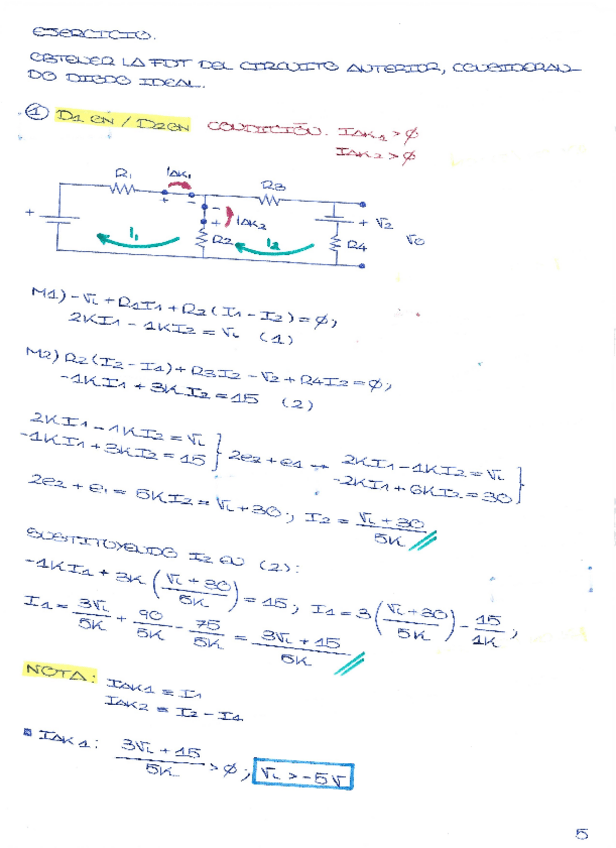 EJERCICIO.
OBTENER LA FDT DEL CIRCUITO ANTERIOR, CONSIDERAN-
DO DIODO IDEAL.
① D1 ON / D2 ON CONDICIÓN: IAK1 > ϕ
IAK2 > ϕ
R1 IAK1 R3
+ + - - + V2
+ IAK2 Vo
I1 R2 I2 R4
M1) -Vi + R1I1 + R2 (I1 - I2) = ϕ;
2KI1 - 1KI2 = Vi (1)
M2) R2 (I2 - I1) + R3I2 - V2 + R4I2 = ϕ;
-1KI1 + 3KI2 = 15 (2)
2KI1 - 1KI2 = Vi
-1KI1 + 3KI2 = 15 } 2e2 + e1 → 2KI1 - 1KI2 = Vi
-2KI1 + 6KI2 = 30 }
2e2 + e1 = 5KI2 = Vi + 30; I2 = (Vi + 30)/5K
SUSTITUYENDO I2 EN (2):
-1KI1 + 3K ((Vi + 30)/5K) = 15; I1 = 3 ((Vi + 30)/5K) - 15/1K;
I1 = 3Vi/5K + 90/5K - 75/5K = (3Vi + 15)/5K
NOTA: IAK1 = I1
IAK2 = I2 - I1
▪ IAK1: (3Vi + 15)/5K > ϕ; Vi > -5V
5